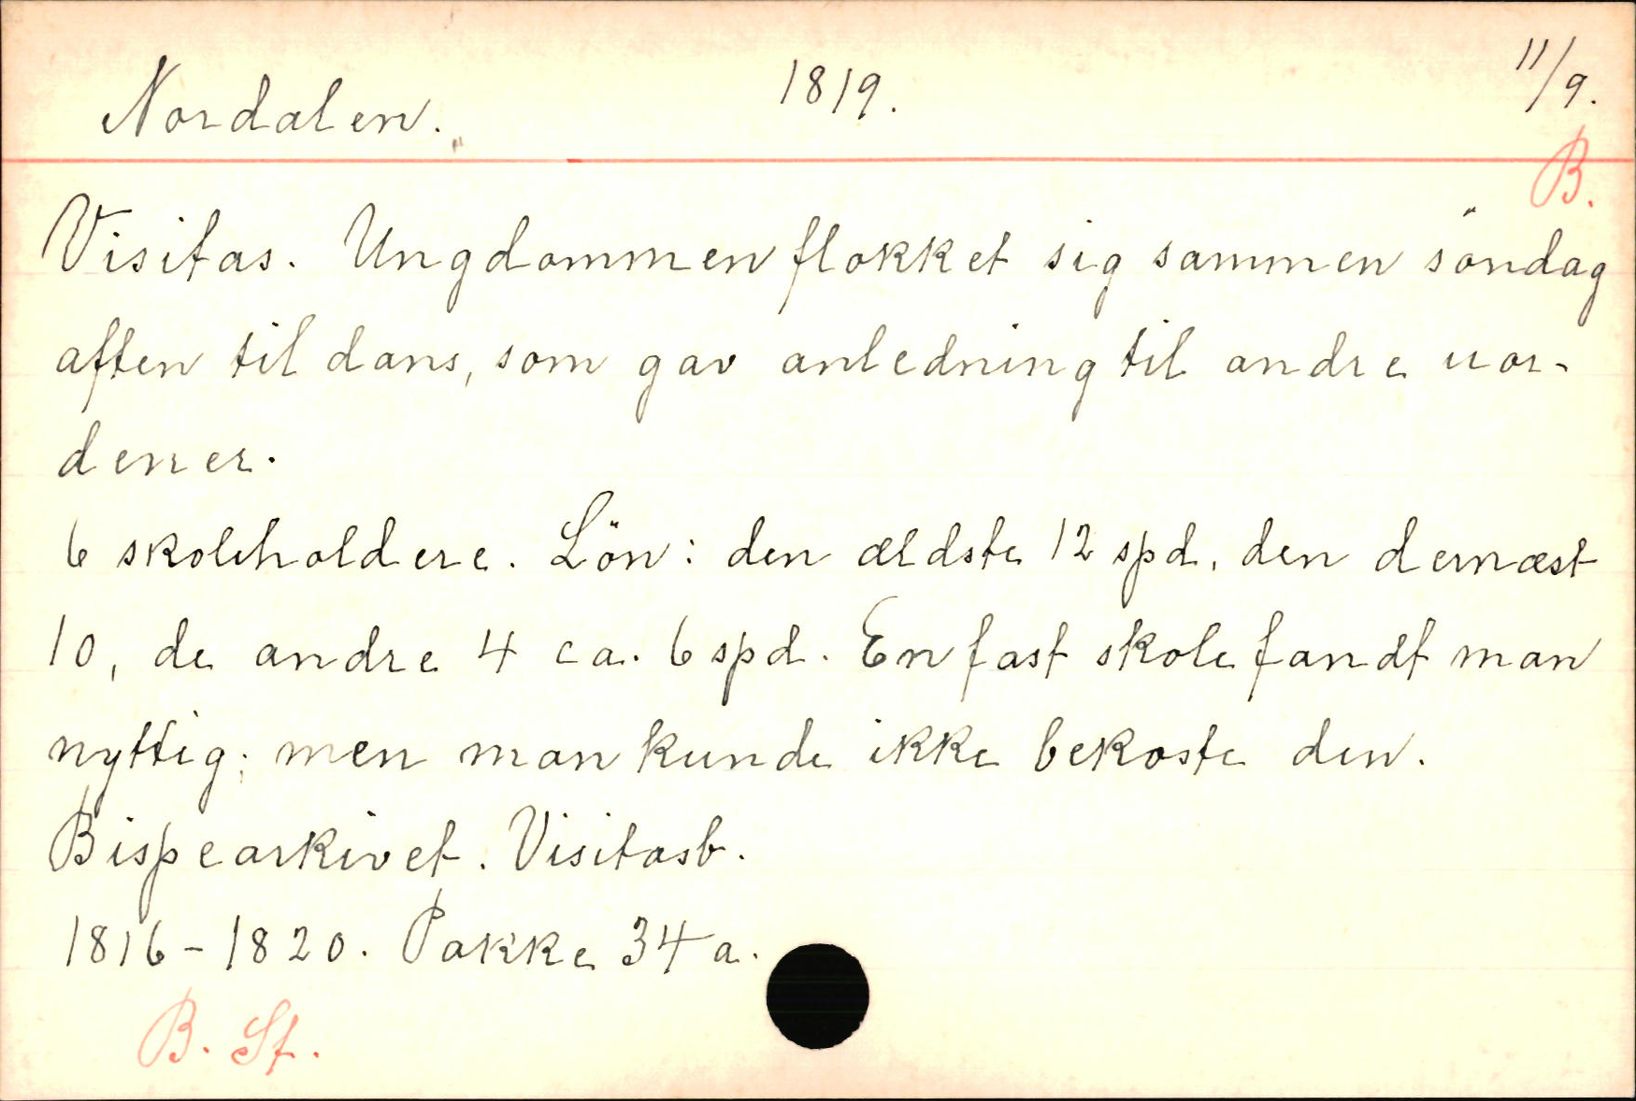 Nordalen. 1819. 11/9.
B.
Visitas. Ungdommen flokket sig sammen söndag
aften til dans, som gav anledning til andre uor-
dener.
6 skoleholdere. Lön: den ældste 12 spd. den dernæst
10, de andre 4 ca. 6 spd. En fast skole fandt man
nyttig; men man kunde ikke bekoste den.
Bispearkivet. Visitasb.
1816-1820. Pakke 34 a.
B. St.